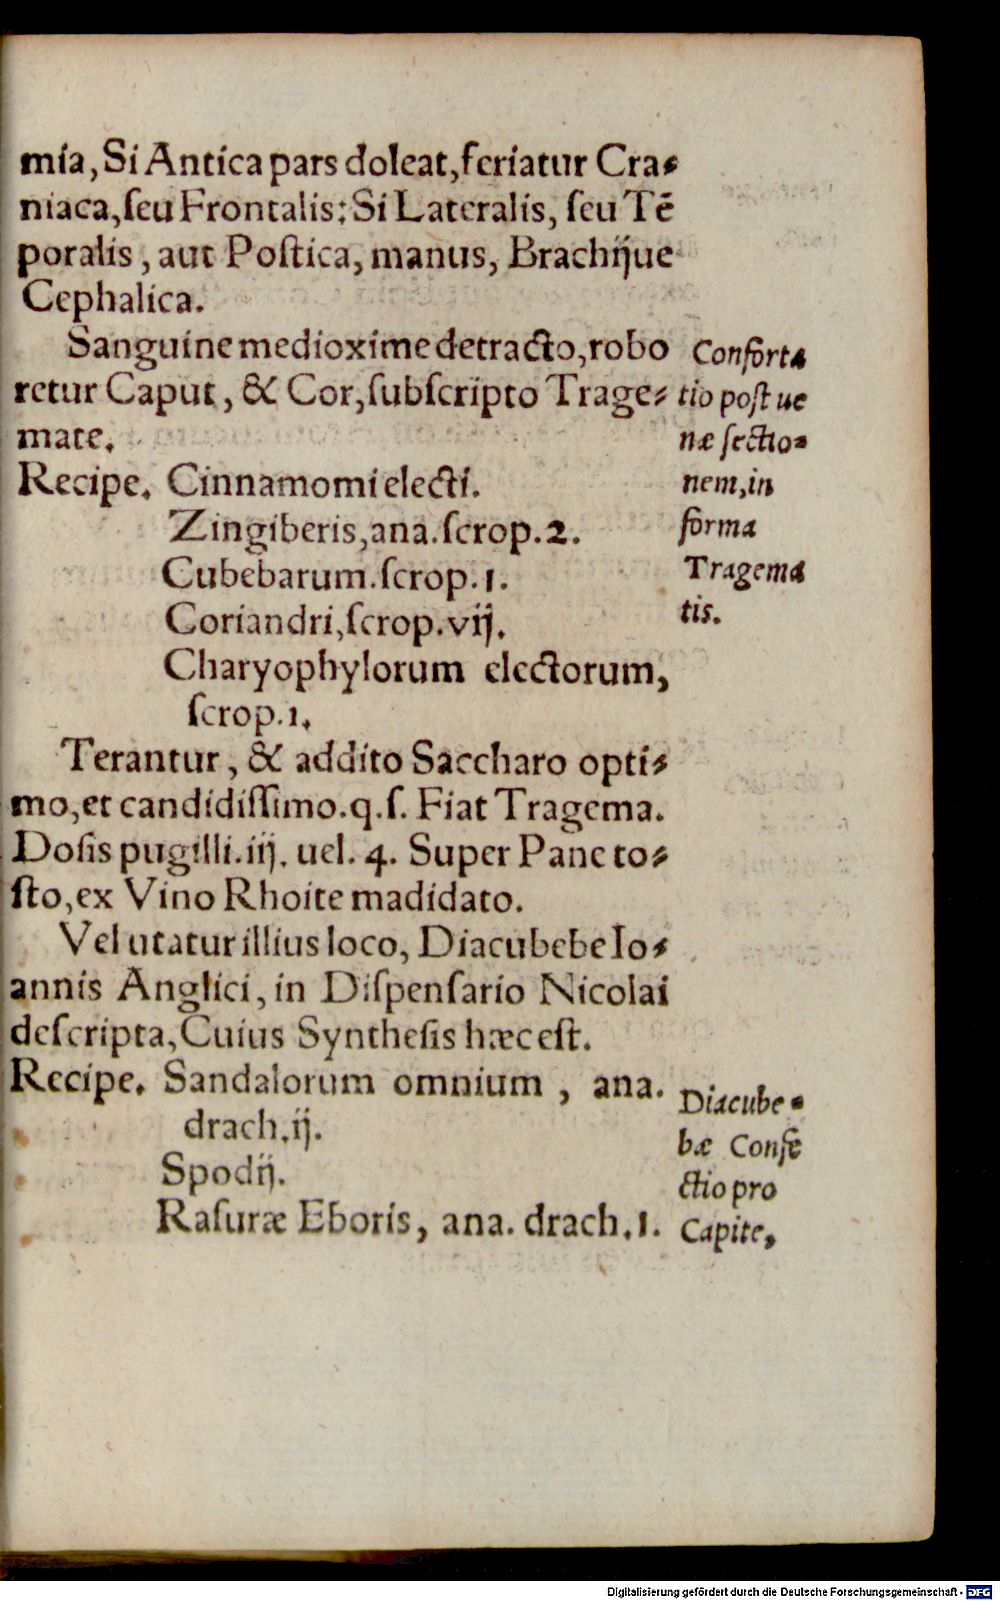 mia, Si Antica pars doleat, feriatur Cra⸗
niaca, ſeu Frontalis: Si Lateralis, ſeu Tē
poralis, aut Poſtica, manus, Brachijue
Cephalica.
Sanguine medioxime detracto, robo
retur Caput, & Cor, ſubſcripto Trage⸗
mate.
Recipe. Cinnamomi electi.
Zingiberis, ana. ſcrop. 2.
Cubebarum. ſcrop. 1.
Coriandri, ſcrop. vij.
Charyophylorum electorum,
ſcrop. 1.
Terantur, & addito Saccharo opti⸗
mo, et candidiſſimo. q. ſ. Fiat Tragema.
Doſis pugilli. iij. uel. 4. Super Pane to⸗
ſto, ex Vino Rhoite madidato.
Vel utatur illius loco, Diacubebe Io⸗
annis Anglici, in Diſpenſario Nicolai
deſcripta, Cuius Syntheſis hæc eſt.
Recipe. Sandalorum omnium, ana.
drach. ij.
Spodij.
Raſuræ Eboris, ana. drach. 1.
Conforta
tio poſt ue
næ ſectio⸗
nem, in
forma
Tragema
tis.
Diacube⸗
bæ Confe
ctio pro
Capite,
Digitalisierung gefördert durch die Deutsche Forschungsgemeinschaft - DFG